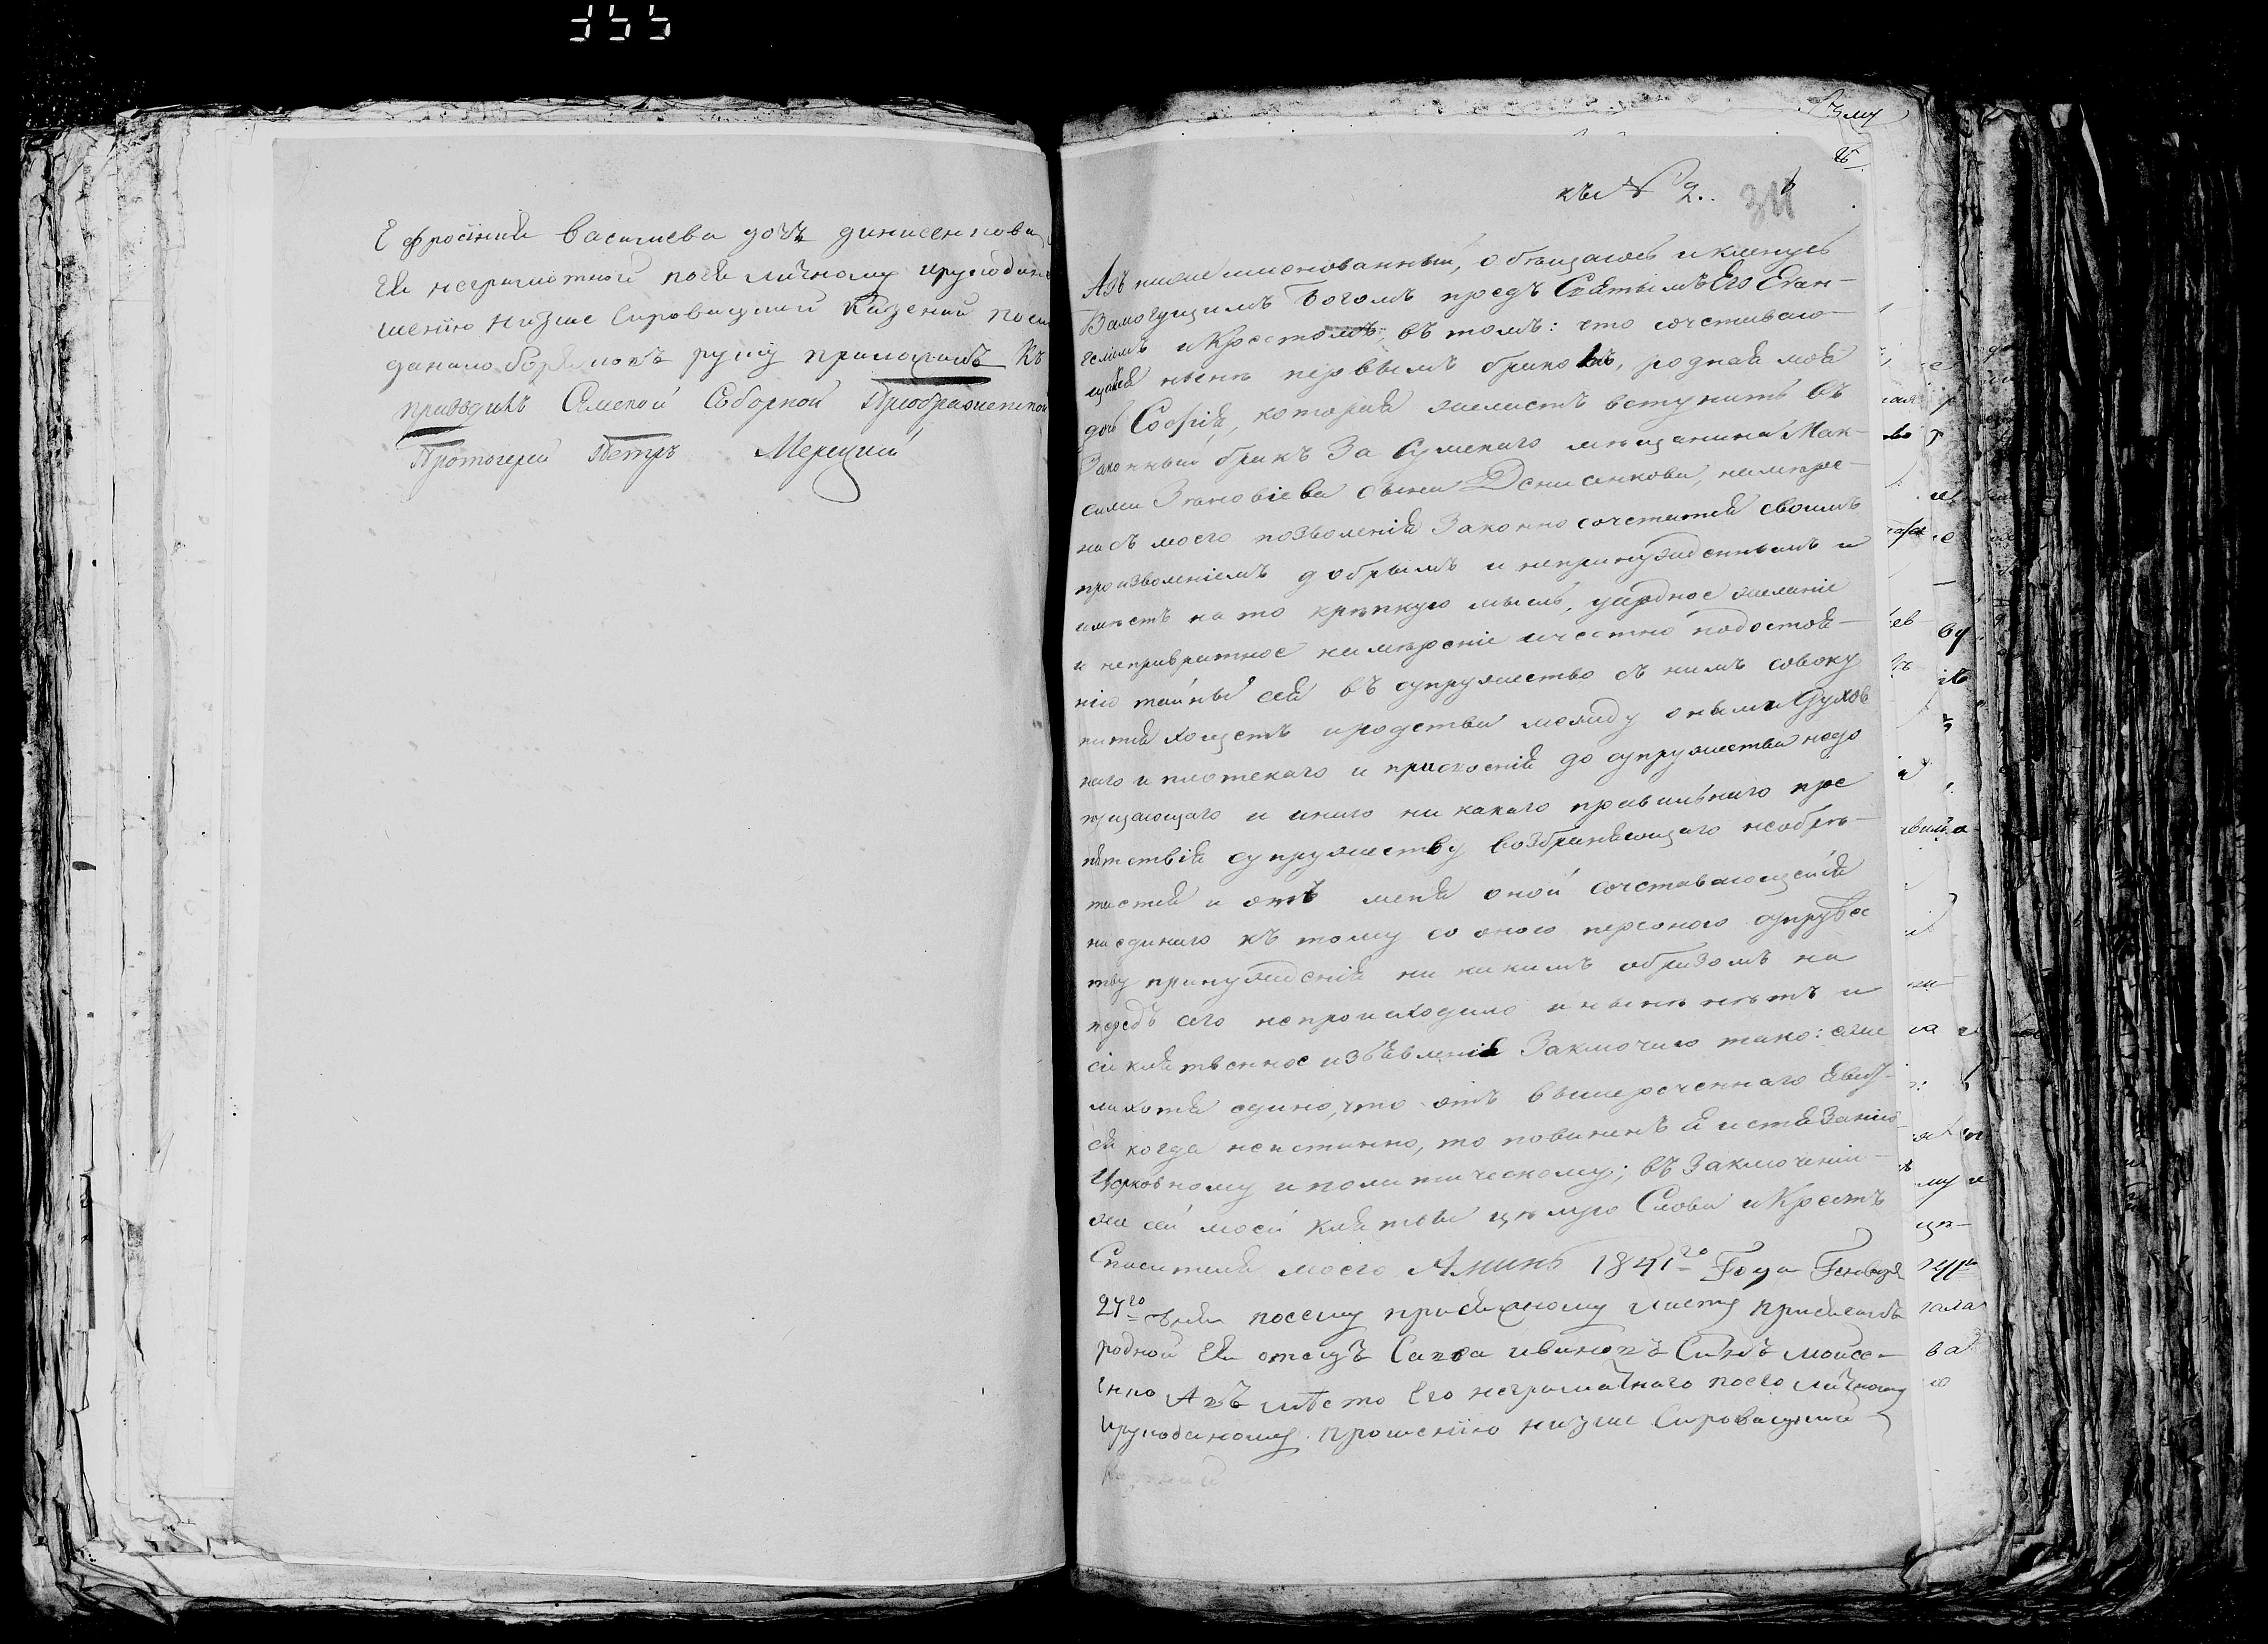 355
Ефросіния Васильева дочъ динисенкова
Ея неграмотной поея личному ирукоданно
шенїю низше Сыровацкий Казений посе
данило боряпокъ руку приложилъ Къ
приводилъ Сумской Соборной Преображенской
Протоіерей Петръ Мерецкий
къ № 2.
Азъ ниже имянованный, обѣщаюсь и клянусь
Всемогущимъ Богомъ предъ Святымъ Его Еван-
геліемъ и Крестомъ, въ томъ: что сочетаваю-
щаяся нынѣ первымъ бракомъ, родная моя
дочь Софія, которая желаетъ вступить въ
Законный бракъ За Сумскаго мѣщанина Мак-
сима Зѣновіева сына Денисенкова, намѣре-
на съ моего позволенія Законно сочетатся своимъ
произволеніемъ добрымъ и непринужденнымъ и
имѣетъ на то крѣпкую мысль, усердное желаніе
и неприватное намѣреніе и честно подостоя-
нію тайны сея въ супружество съ нимъ совоку
питися хощетъ и родства между оными Духов
наго и плотскаго и присвоенія до супружества недо
пущающаго и инаго никакаго правильнаго пре
пятствія супружеству возбраняющаго необрѣ-
тается и отъ меня оной сочетавающейся
ниединаго къ тому со оною персоною супруже
тву принужденія ни какимъ образомъ на
передъ сего непроисходило и нынѣ нѣтъ и
сіе клятвенное изъявленіе Заключаю тако: еже
ли хотя едино, что отъ вышереченнаго явит-
ся когда неистинно, то повиненъ я истязанію
Церковному и политическому; въ Заключеніи
же сей моей клятвы цѣлую Слова и Крестъ
Спасителя моего Аминь 1841го Года Генваря
27го дня посему присяжному листу присягалъ
родной Ея отецъ Савва ивановъ Сынъ моисе-
енко Авъ мѣсто Его неграматнаго поего личному
ирукоданному прошенїю низше Сыровацкий